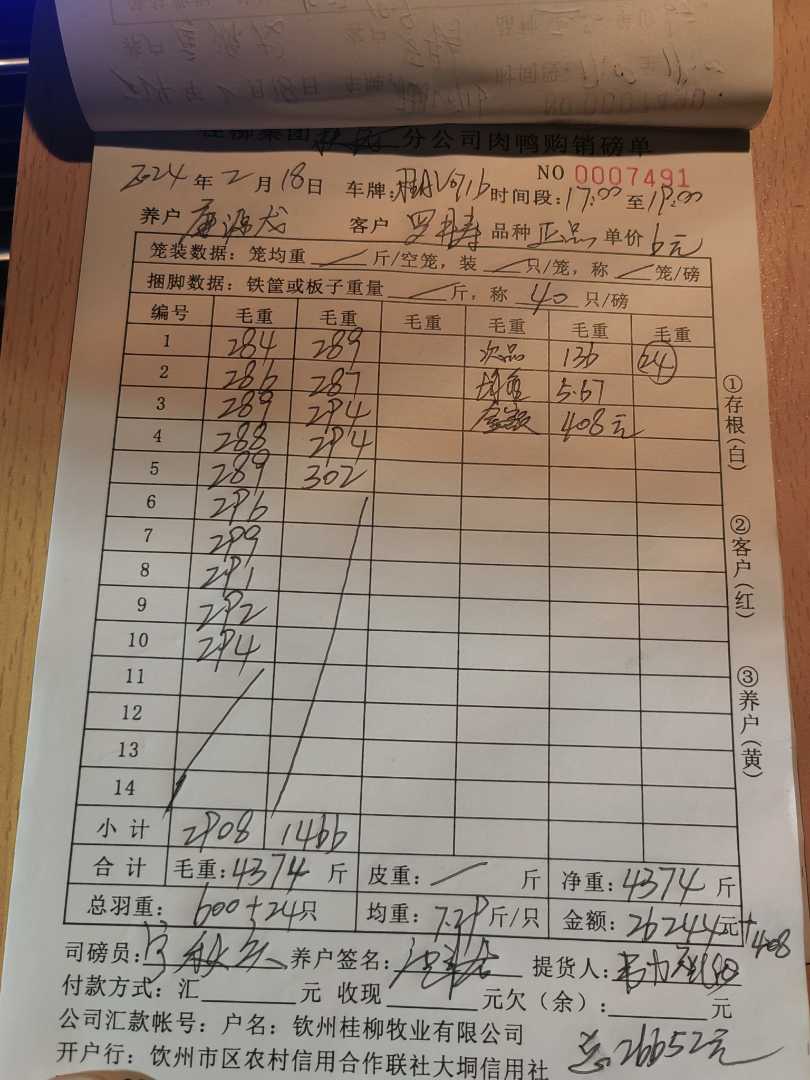 分公司肉鸭购销磅单
NO 0007491
2024年2月18日 车牌: 时间段:17:00至19:00
养户 客户 品种 正品 单价 6元
笼装数据:笼均重 / 斤/空笼,装 / 只/笼,称 / 笼/磅
捆脚数据:铁筐或板子重量 / 斤,称 40 只/磅
编号 毛重 毛重 毛重 毛重 毛重 毛重
1 284 289 次品 136 24
2 286 287 均重 5.67
3 289 294 金额 408元
4 288 294
5 289 302
6 296
7 299
8 291
9 292
10 294
11
12
13
14
小计 2908 1466
合计 毛重:4374斤 皮重:/ 斤 净重:4374斤
总羽重:600+24只 均重:7.29斤/只 金额:26244元+408
司磅员: 养户签名: 提货人:
付款方式:汇 元 收现 元欠(余): 元
公司汇款帐号:户名:钦州桂柳牧业有限公司
开户行:饮州市区农村信用合作联社大垌信用社
总26652元
①存根(白)
②客户(红)
③养户(黄)